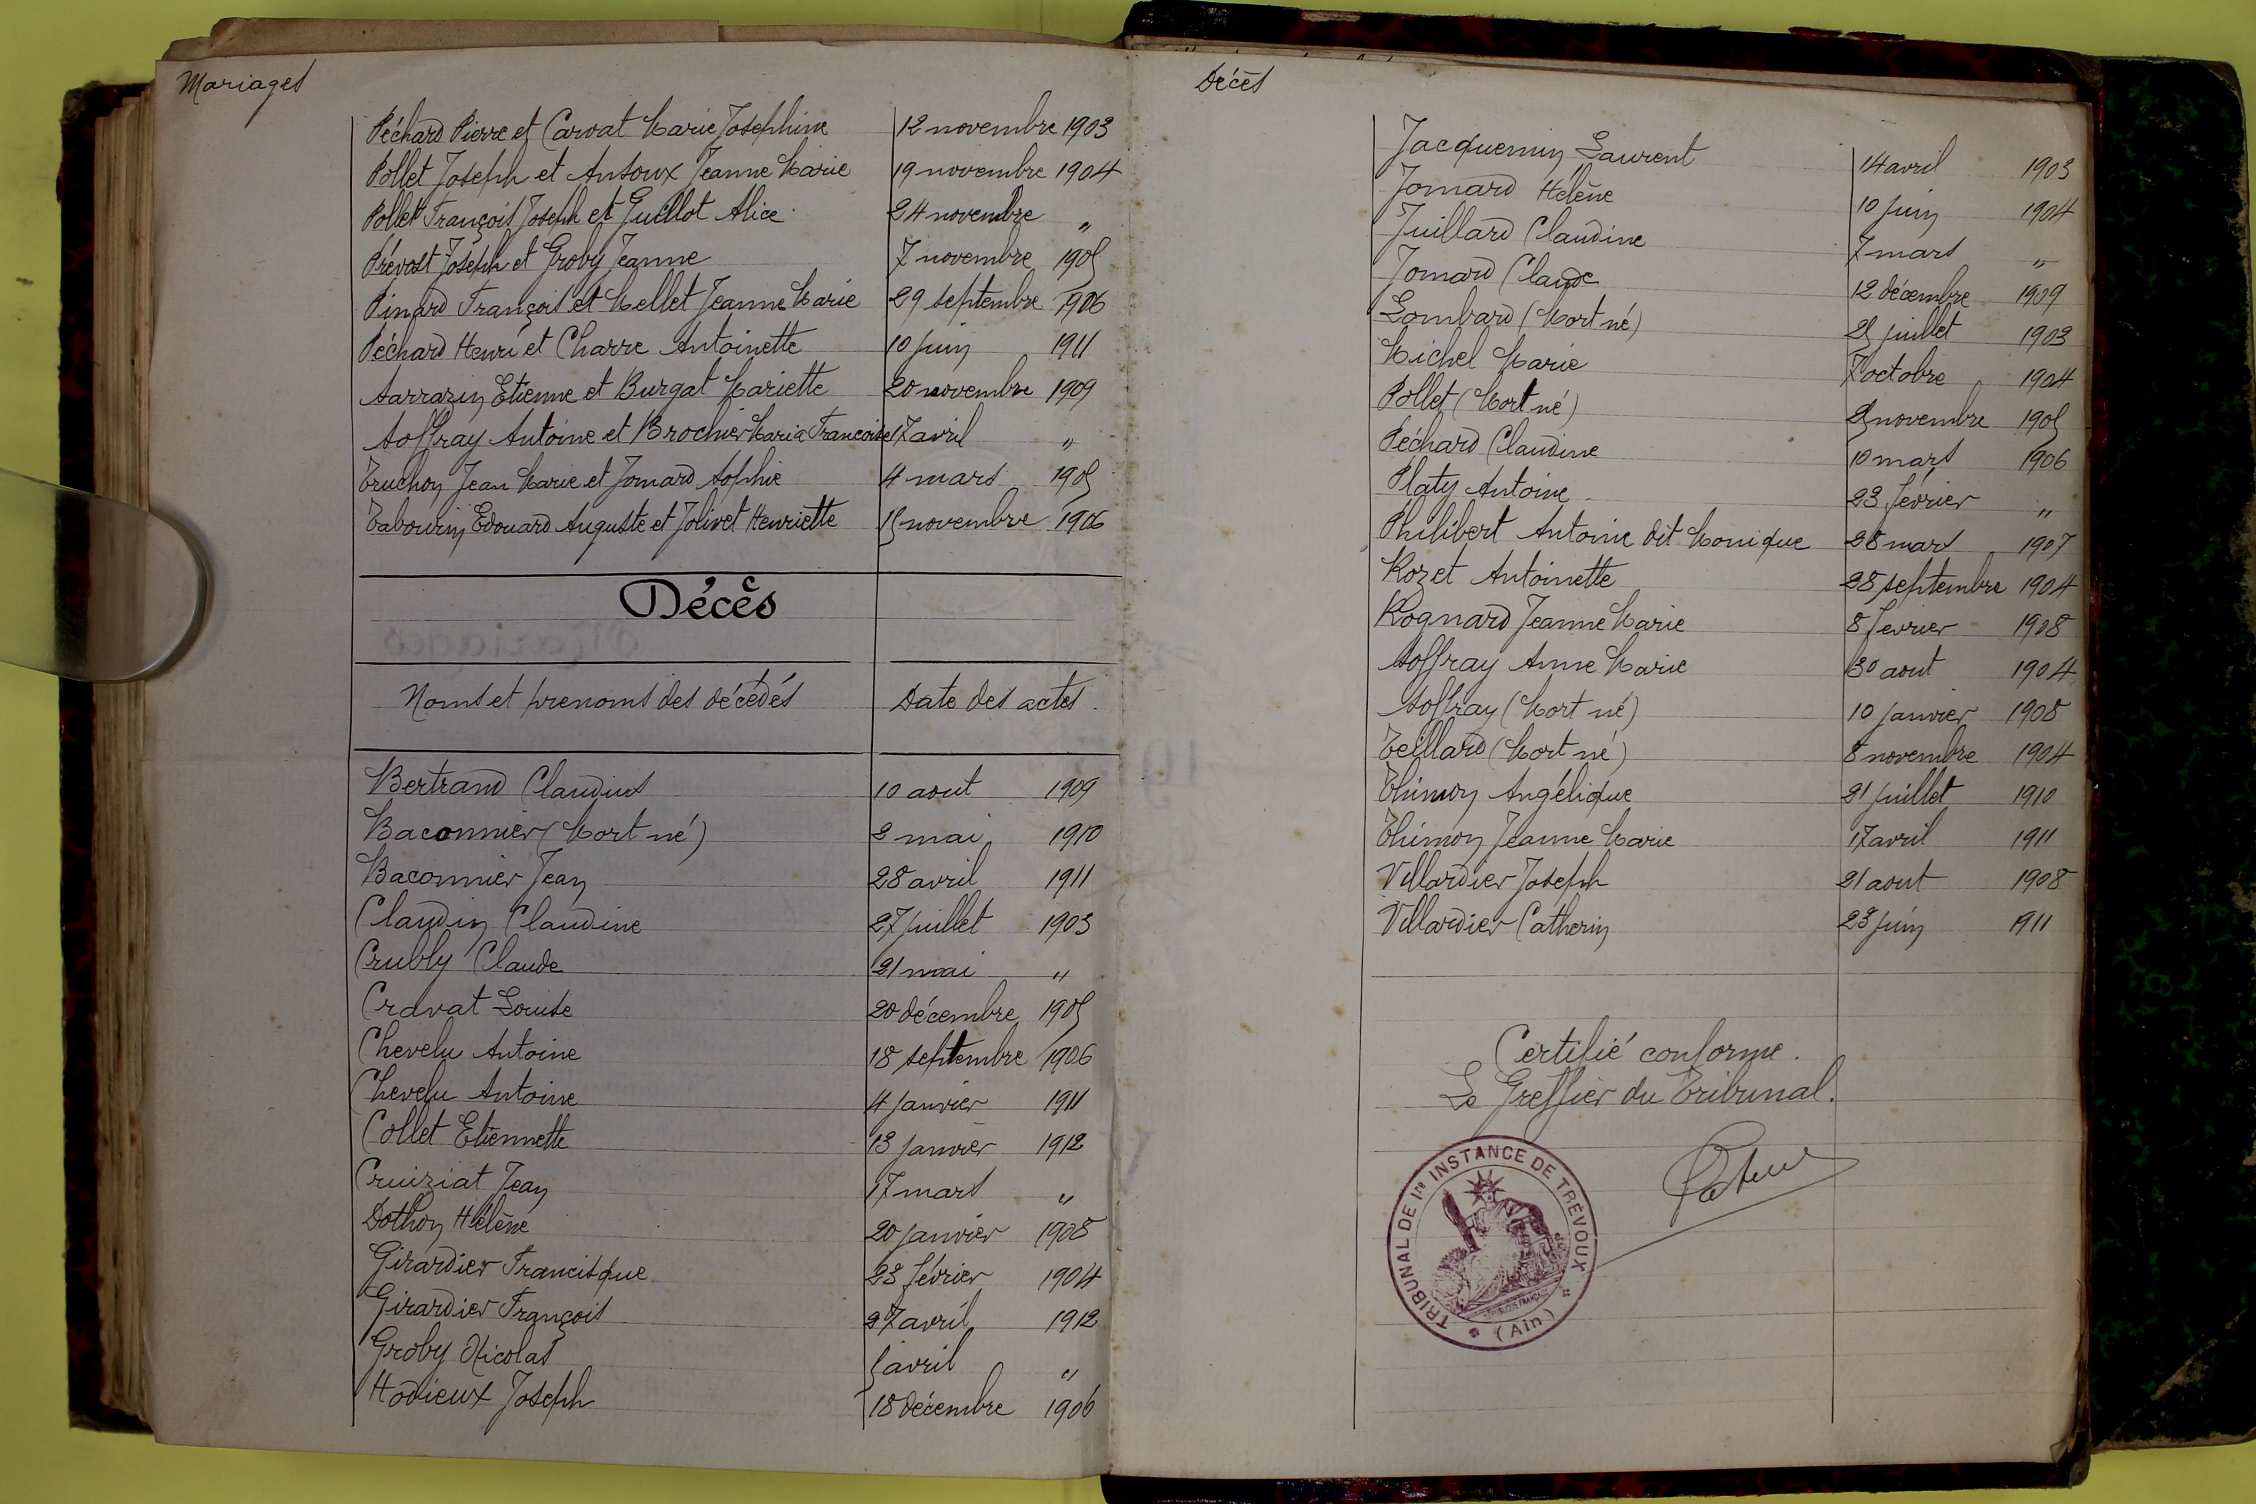 Mariages
Péchard Pierre et Carvat Marie Joséphine 12 novembre 1903
Pollet Joseph et Ansoux Jeanne Marie 19 novembre 1904
Pollet François Joseph et Guillot Alice 24 novembre "
Prévost Joseph et Groby Jeanne 7 novembre 1905
Pinard François et Mellet Jeanne Marie 29 septembre 1906
Péchard Henri et Charre Antoinette 10 juin 1911
Sarrazin Etienne et Burgat Mariette 20 novembre 1909
Soffray Antoine et Brochier Maria Françoise 17 avril "
Truchon Jean Marie et Jomard Sophie 4 mars 1905
Tabourin Edouard Auguste et Jolivet Henriette 15 novembre 1906
Décès
Noms et prenoms des décédés Date des actes
Bertrand Claudius 10 aout 1909
Baconnier (Mort né) 2 mai 1910
Baconnier Jean 28 avril 1911
Claudin Claudine 27 juillet 1903
Crubly Claude 21 mai "
Cravat Louise 20 décembre 1905
Chevelu Antoine 18 septembre 1906
Chevelu Antoine 4 janvier 1911
Collet Etiennette 13 janvier 1912
Cruiziat Jean 17 mars "
Dothon Hélène 20 janvier 1908
Girardier Francisque 23 février 1904
Girardier François 27 avril 1912
Groby Nicolas 5 avril "
Hodieux Joseph 18 décembre 1906
Décès
Jacquemin Laurent 14 avril 1903
Jomard Hélène 10 juin 1904
Juillard Claudine 7 mars "
Jomard Claude 12 décembre 1909
Lombard (Mort né) 25 juillet 1903
Michel Marie 7 octobre 1904
Pollet (Mort né) 25 novembre 1905
Péchard Claudine 10 mars 1906
Platy Antoine 23 février "
Philibert Antoine dit Monique 28 mars 1907
Rozet Antoinette 28 septembre 1904
Rognard Jeanne Marie 8 février 1908
Soffray Anne Marie 30 aout 1904
Soffray (Mort né) 10 janvier 1908
Teillard (Mort né) 8 novembre 1904
Thimon Angélique 21 juillet 1910
Thimon Jeanne Marie 17 avril 1911
Villardier Joseph 21 aout 1908
Villardier Catherin 23 juin 1911
Certifié conforme.
Le Greffier du Tribunal.
TRIBUNAL DE 1re INSTANCE DE TRÉVOUX
(Ain)